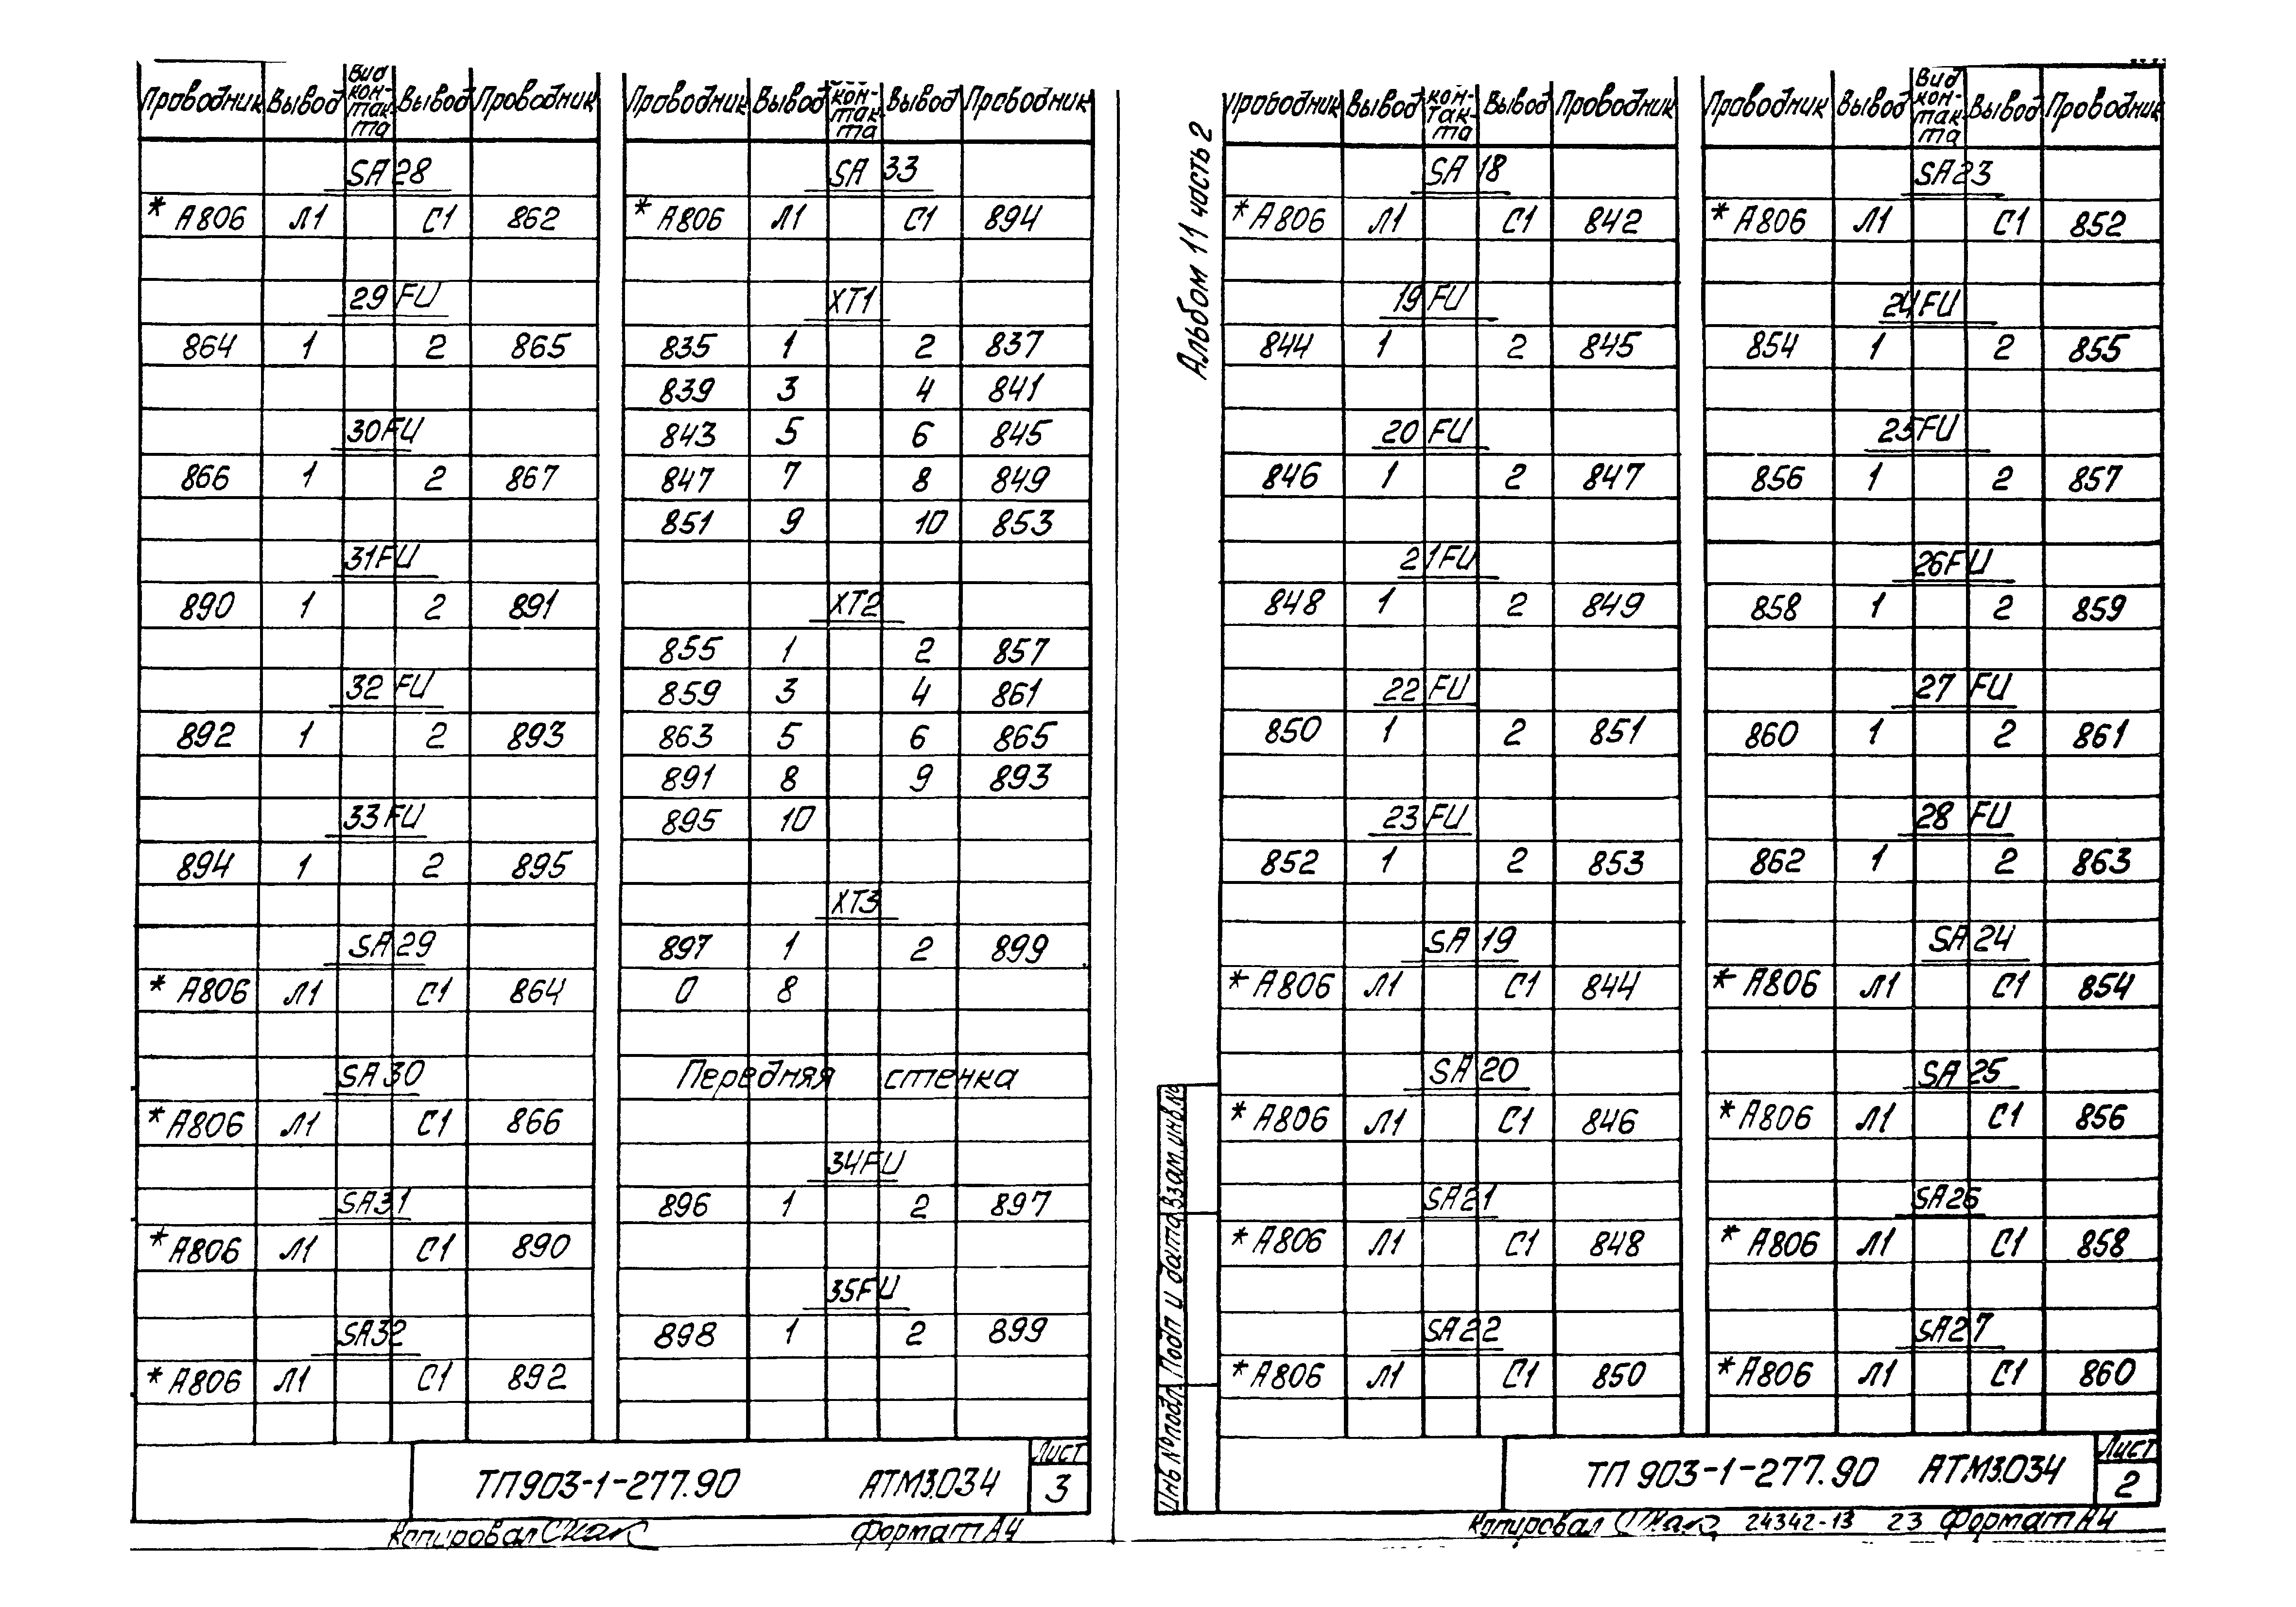 Проводник Вывод Вид кон-так-та Вывод Проводник
SA28
*А806 Л1 С1 862
29FU
864 1 2 865
30FU
866 1 2 867
31FU
890 1 2 891
32FU
892 1 2 893
33FU
894 1 2 895
SA29
*А806 Л1 С1 864
SA30
*А806 Л1 С1 866
SA31
*А806 Л1 С1 890
SA32
*А806 Л1 С1 892
Проводник Вывод кон-так-та Вывод Проводник
SA33
*А806 Л1 С1 894
XT1
835 1 2 837
839 3 4 841
843 5 6 845
847 7 8 849
851 9 10 853
XT2
855 1 2 857
859 3 4 861
863 5 6 865
891 8 9 893
895 10
XT3
897 1 2 899
0 8
Передняя стенка
34FU
896 1 2 897
35FU
898 1 2 899
ТП903-1-277.90 АТМ3.034
Лист
3
Копировал
Формат А4
Альбом 11 часть 2
Проводник Вывод кон-так-та Вывод Проводник
SA18
*А806 Л1 С1 842
19FU
844 1 2 845
20FU
846 1 2 847
21FU
848 1 2 849
22FU
850 1 2 851
23FU
852 1 2 853
SA19
*А806 Л1 С1 844
SA20
*А806 Л1 С1 846
SA21
*А806 Л1 С1 848
SA22
*А806 Л1 С1 850
Проводник Вывод Вид кон-так-та Вывод Проводник
SA23
*А806 Л1 С1 852
24FU
854 1 2 855
25FU
856 1 2 857
26FU
858 1 2 859
27FU
860 1 2 861
28FU
862 1 2 863
SA24
*А806 Л1 С1 854
SA25
*А806 Л1 С1 856
SA26
*А806 Л1 С1 858
SA27
*А806 Л1 С1 860
Инв № подл. Подп и дата Взам. инв. №
ТП 903-1-277.90 АТМ3.034
Лист
2
Копировал
24342-13 23 Формат А4